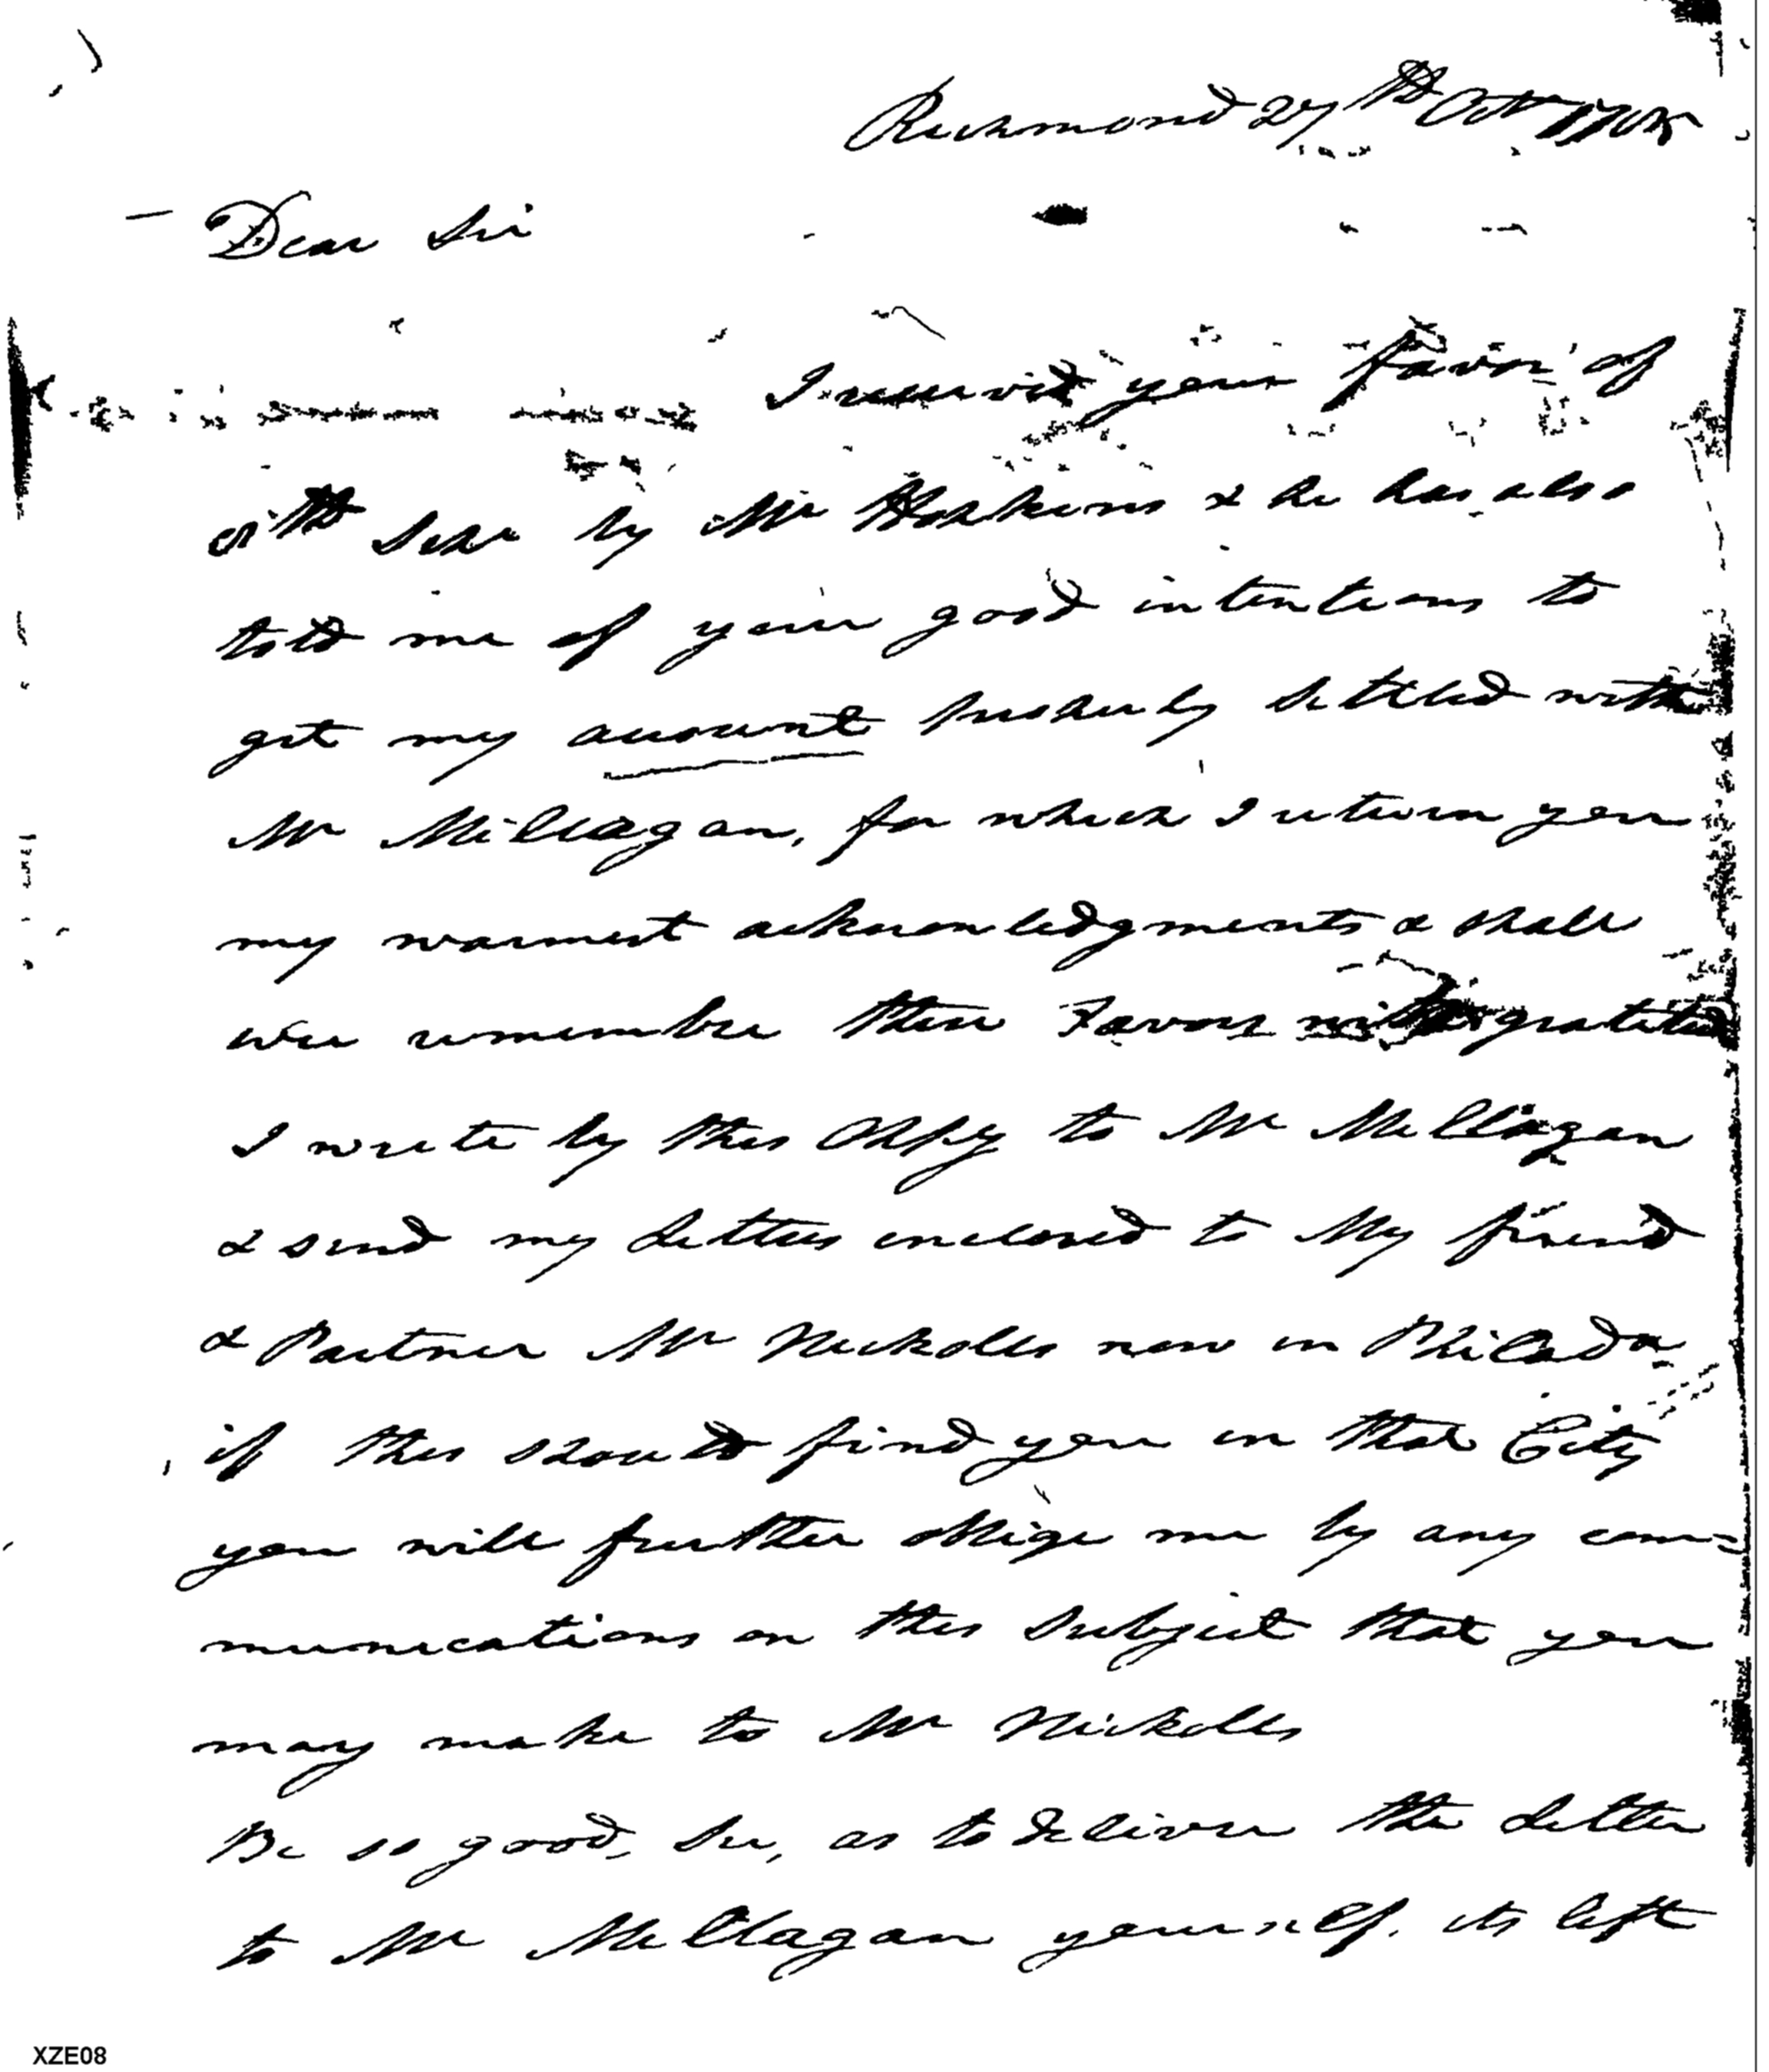 Richmond 27th Octr
Dear Sir
I received your favor of
by Mr Hopkins & he has also
told me of your good intentions to
get my account properly settled with
Mr Millagan, for which I return you
my warmest acknowledgments & shall
ever remember these Favors with gratitude
I write by this Oppy to Mr Millagan
& send my Letters enclosed to My friend
& Partner Mr Nickolls now in Philada
if this should find you in that City
you will further oblige me by any com=
munications on this Subject that you
may make to Mr Nickolls
Be so good, Sir, as to deliver the Letter
to Mr Millagan yourself. its left
XZE08